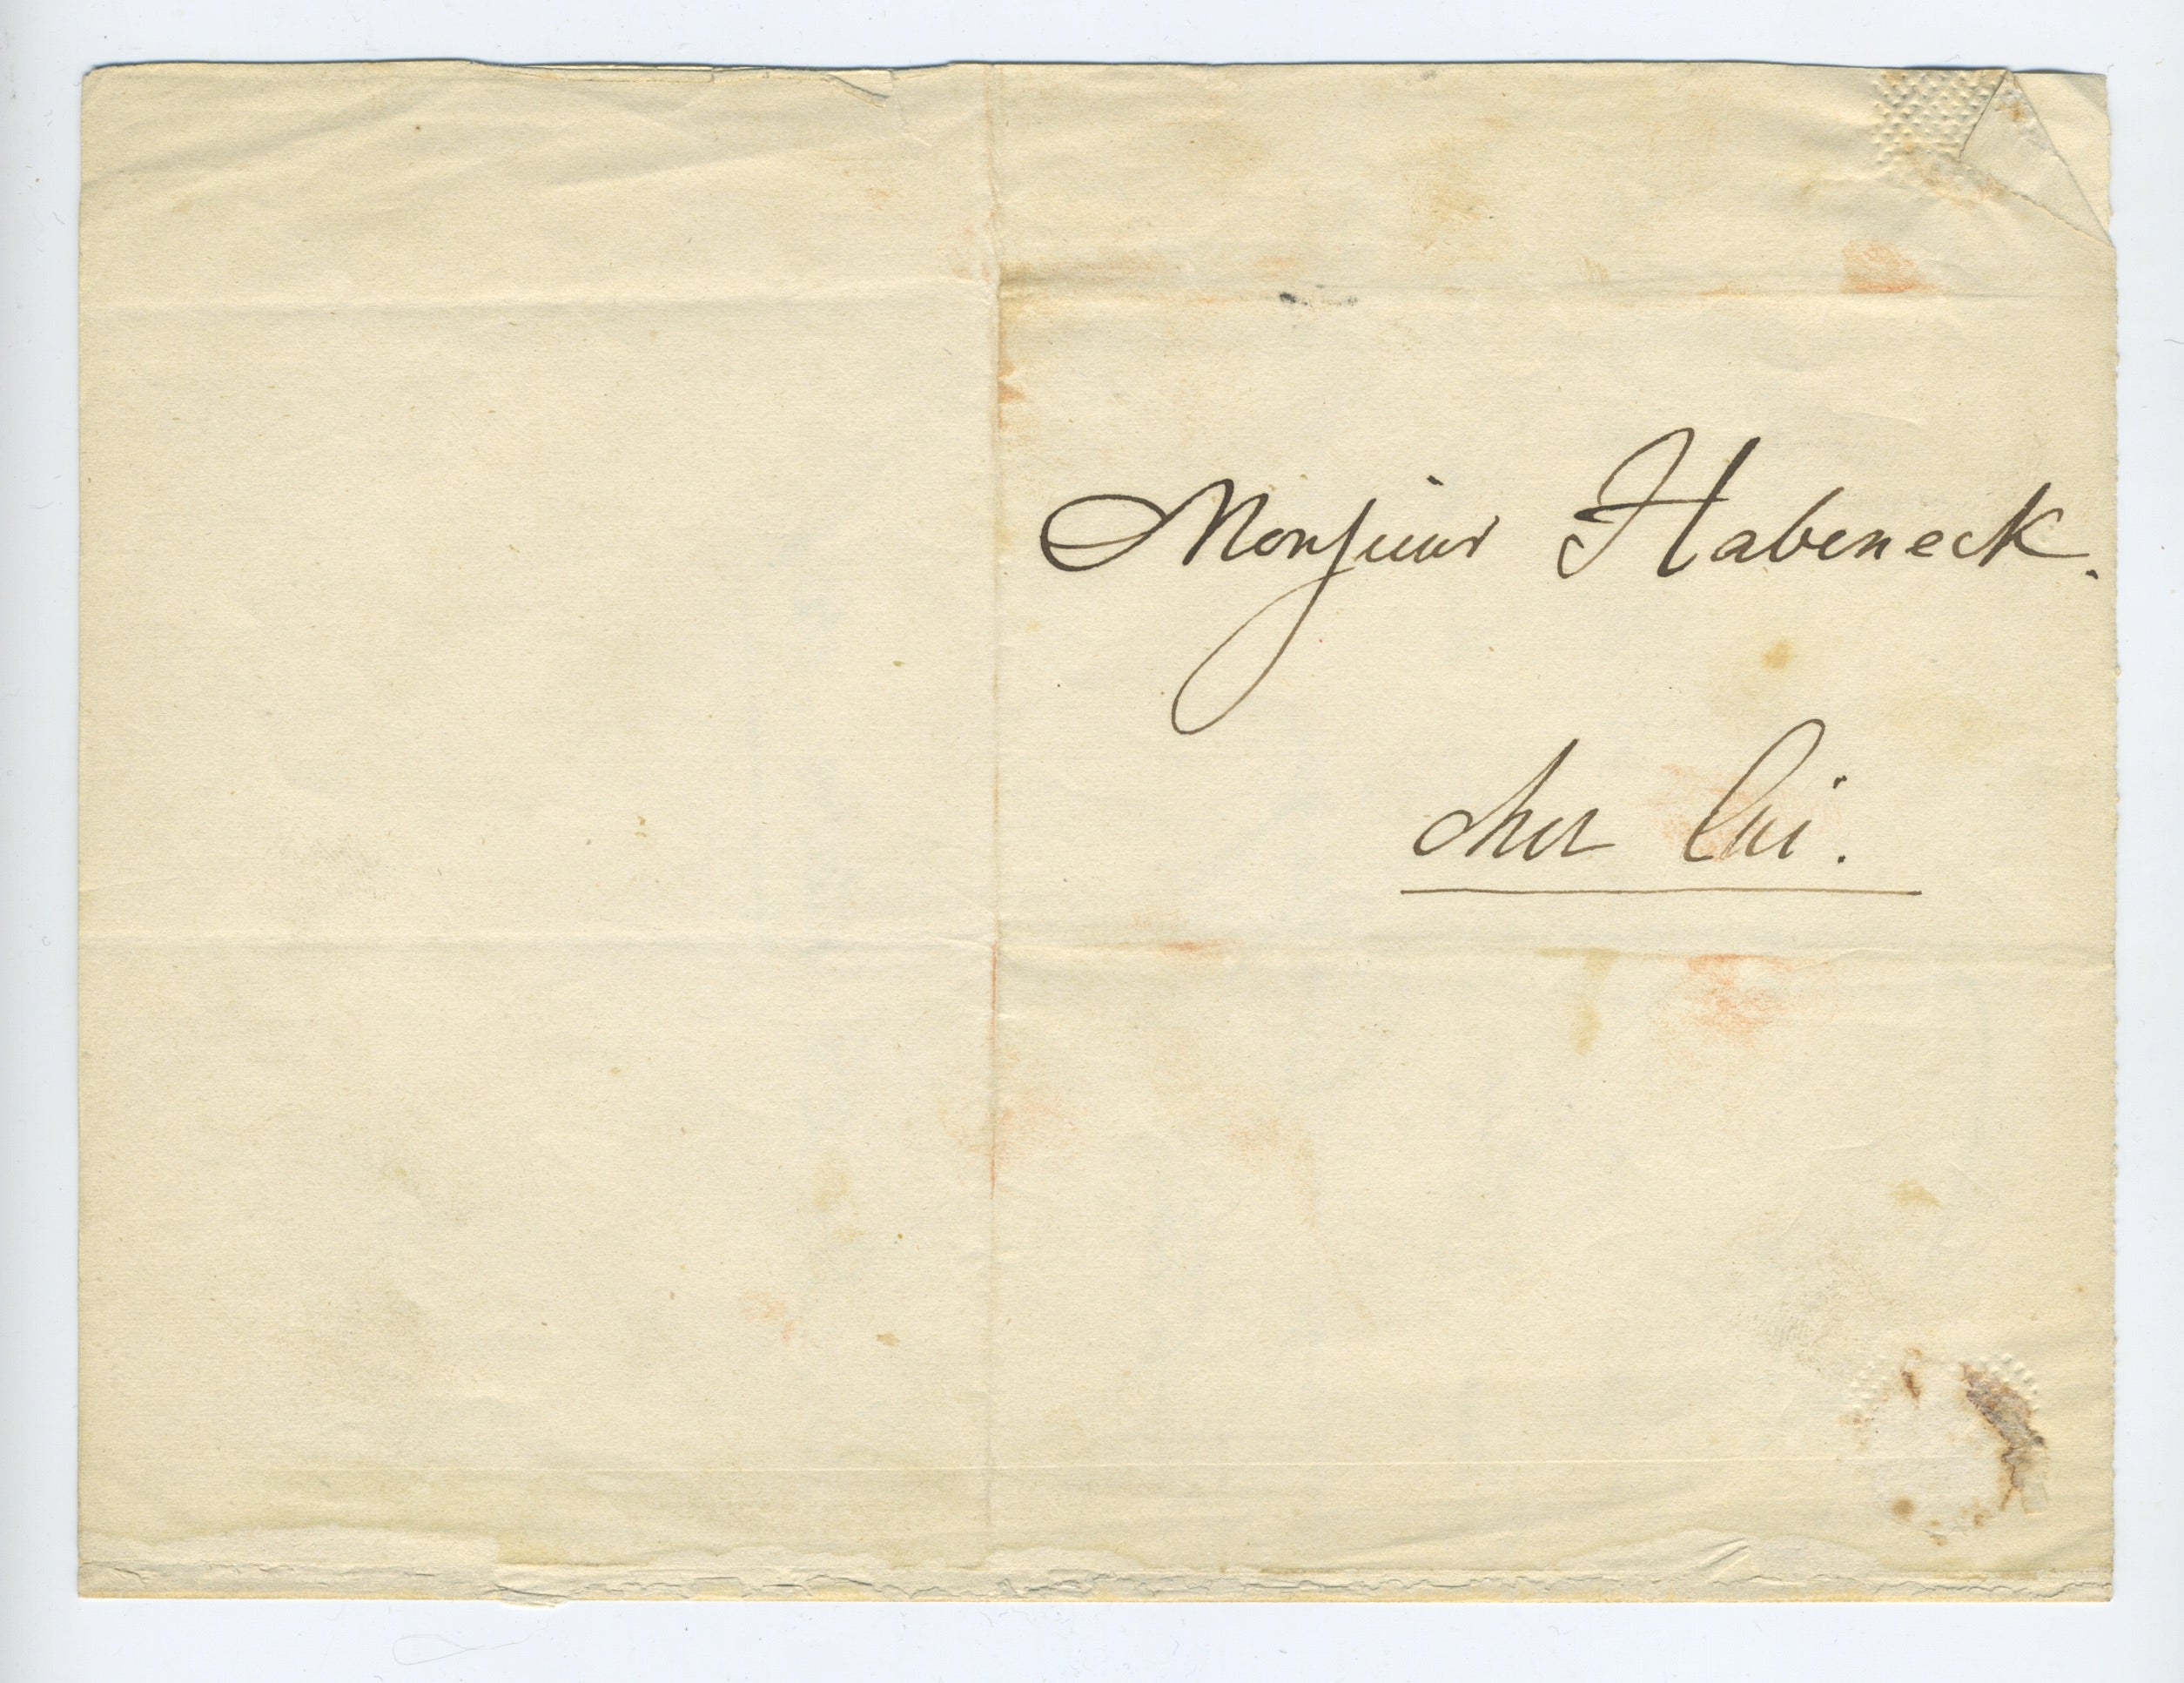 Monsieur Habeneck.
chez lui.